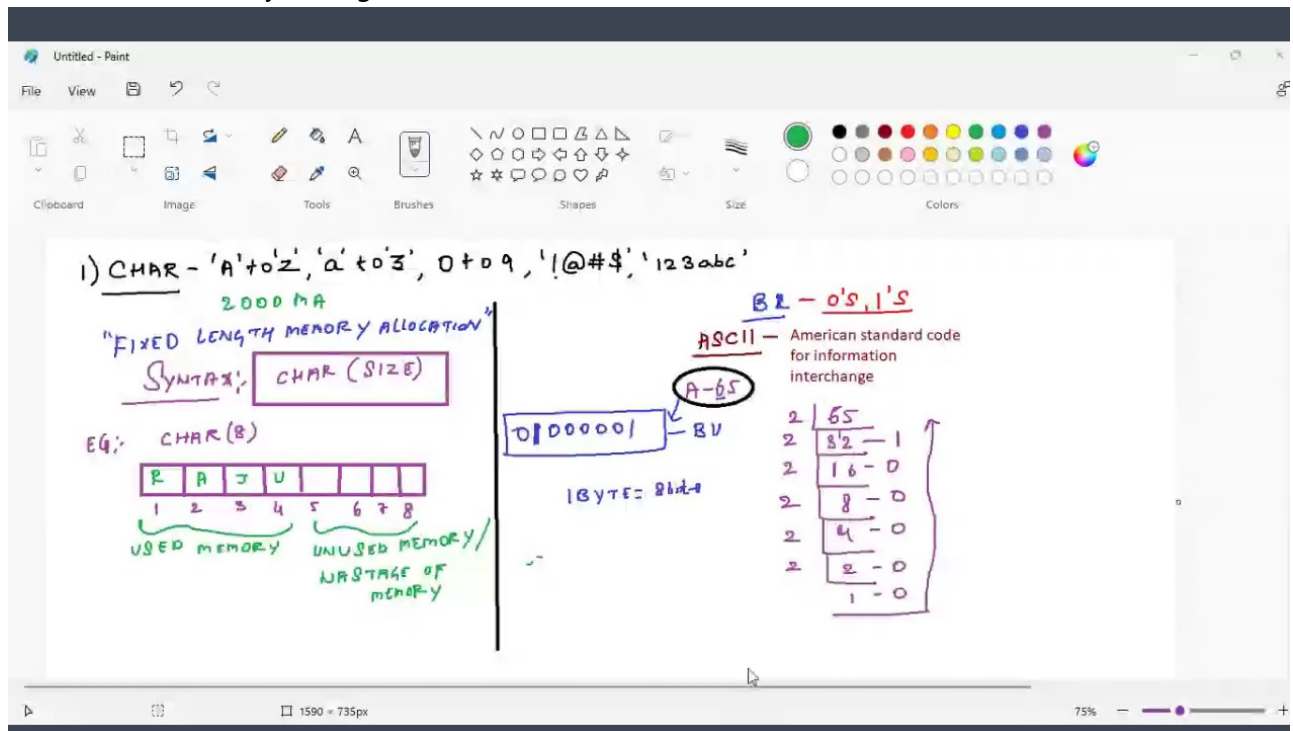 Untitled - Paint
File View
Clipboard Image Tools Brushes Shapes Size Colors
1) CHAR - 'A' to 'Z', 'a' to 'z', 0 to 9, '!@#$', '123abc'
2000 MA
"FIXED LENGTH MEMORY ALLOCATION"
SYNTAX:- CHAR (SIZE)
EG:- CHAR(8)
R A J U
1 2 3 4 5 6 7 8
USED MEMORY
UNUSED MEMORY/
WASTAGE OF
MEMORY
BL - 0'S, 1'S
ASCII - American standard code
for information
interchange
A-65
01000001 - BV
1BYTE = 8bits
2 65
2 32 - 1
2 16 - 0
2 8 - 0
2 4 - 0
2 2 - 0
1 - 0
1590 × 735px
75%